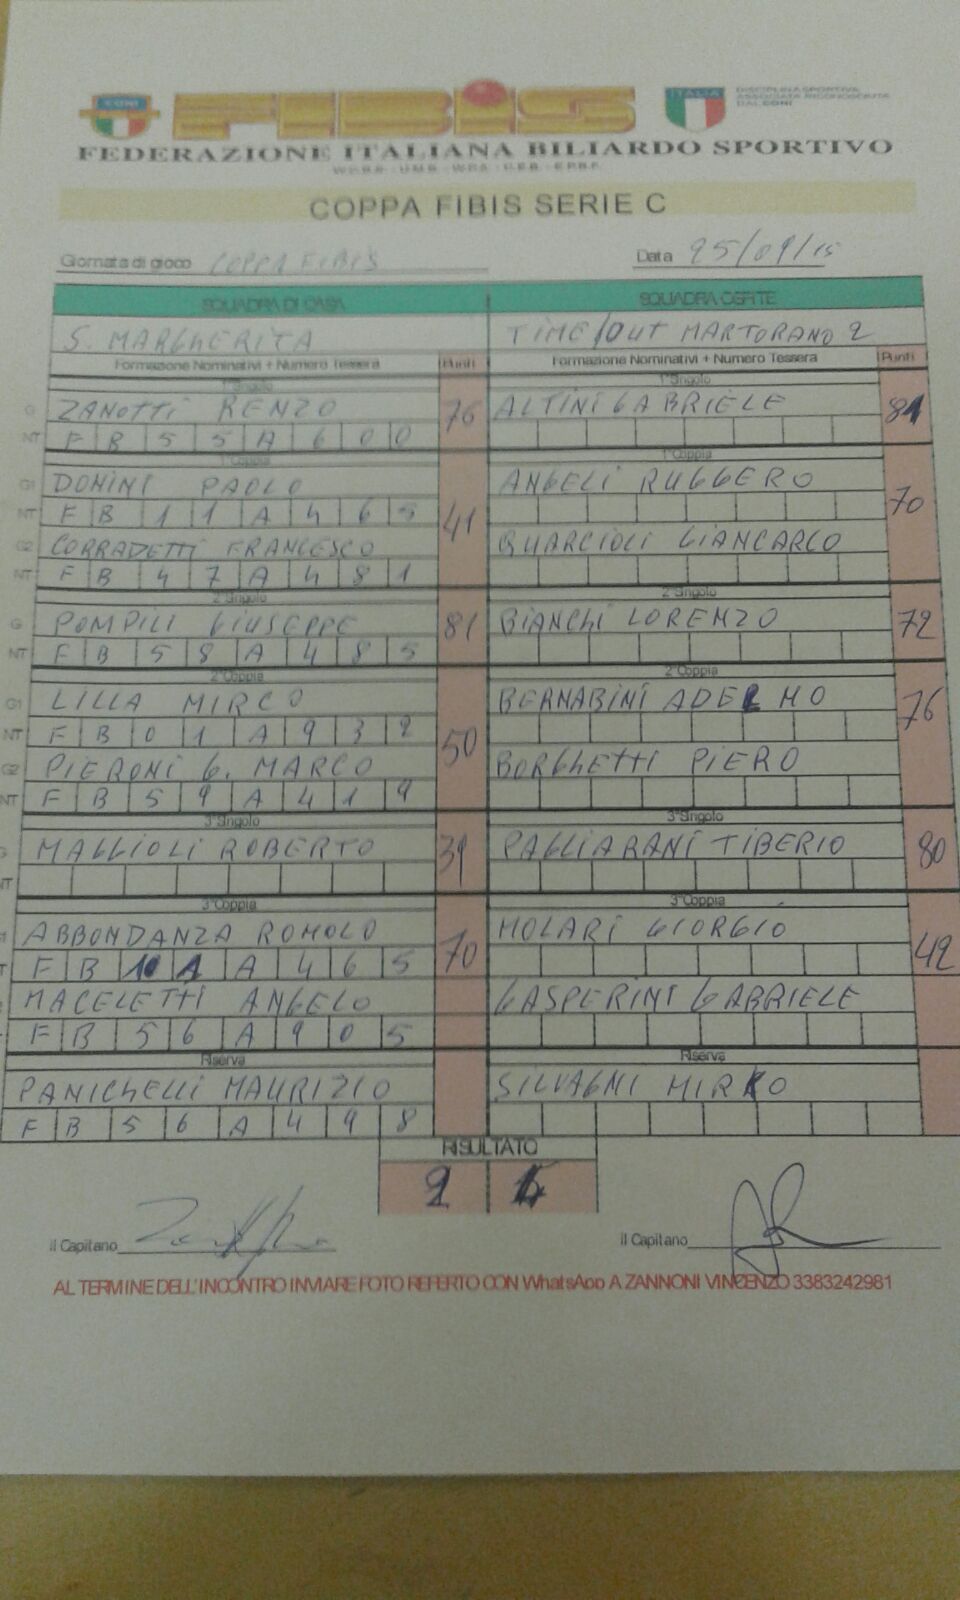 CONI
FIBiS
ITALIA
DISCIPLINA SPORTIVA
ASSOCIATA RICONOSCIUTA
DAL CONI
FEDERAZIONE ITALIANA BILIARDO SPORTIVO
COPPA FIBIS SERIE C
Giornata di gioco COPPA FIBIS
Data 25/09/15
SQUADRA DI CASA SQUADRA OSPITE
S. MARGHERITA TIME/OUT MARTORANO 2
Formazione Nominativi + Numero Tessera Punti Formazione Nominativi + Numero Tessera Punti
1°Singolo 1°Singolo
G ZANOTTI RENZO 76 ALTINI GABRIELE 81
NT F B 5 5 A 6 0 0
1°Coppia 1°Coppia
G1 DONINI PAOLO 41 ANGELI RUGGERO 70
NT F B 1 1 A 4 6 5
G2 CORRADETTI FRANCESCO QUARCIOLI GIANCARLO
NT F B 4 7 A 4 8 1
2°Singolo 2°Singolo
G POMPILI GIUSEPPE 81 BIANCHI LORENZO 72
NT F B 5 8 A 4 8 5
2°Coppia 2°Coppia
G1 LILLA MIRCO 50 BERNABINI ADELMO 76
NT F B 0 1 A 9 3 2
G2 PIERONI G. MARCO BORGHETTI PIERO
NT F B 5 9 A 4 1 9
3°Singolo 3°Singolo
G MAGGIOLI ROBERTO 39 PAGLIARANI TIBERIO 80
NT
3°Coppia 3°Coppia
ABBONDANZA ROMOLO 70 MOLARI GIORGIO 42
F B 10 1 A 4 6 5
MACELETTI ANGELO GASPERINI GABRIELE
F B 5 6 A 9 0 5
Riserva Riserva
PANICHELLI MAURIZIO SILVAGNI MIRKO
F B 5 6 A 4 9 8
RISULTATO
2 4
il Capitano il Capitano
AL TERMINE DELL'INCONTRO INVIARE FOTO REFERTO CON WhatsApp A ZANNONI VINCENZO 3383242981